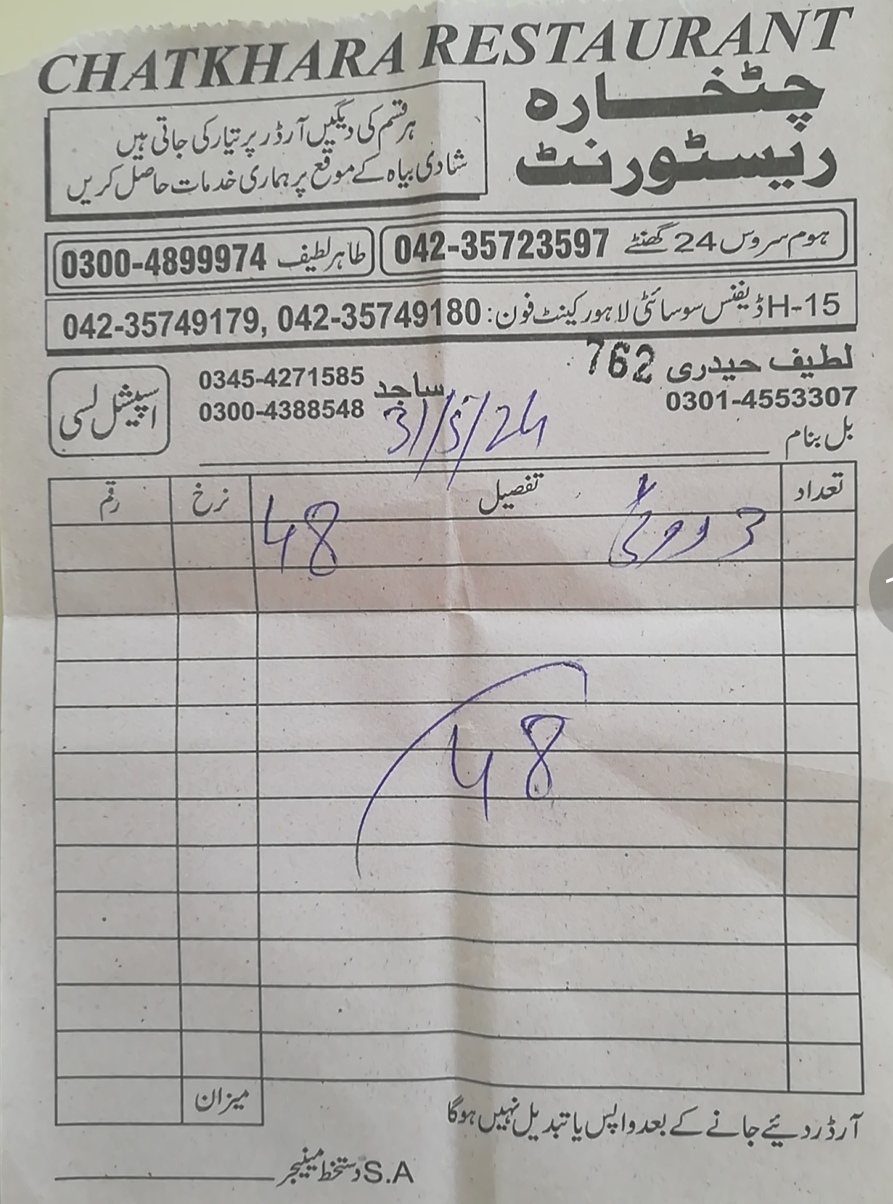 CHATKHARA RESTAURANT
چٹخارہ
ریسٹورنٹ
ہر قسم کی دیگیں آرڈر پر تیار کی جاتی ہیں
شادی بیاہ کے موقع پر ہماری خدمات حاصل کریں
ہوم سروس 24 گھنٹے 042-35723597
طاہر لطیف 0300-4899974
H-15 ڈیفنس سوسائٹی لاہور کینٹ فون: 042-35749179, 042-35749180
لطیف حیدری 762
0301-4553307
ساجد 0345-4271585
0300-4388548
اسپیشل لسی
بل بنام
31/5/24
تعداد تفصیل نرخ رقم
3 روٹی 48
48
میزان
آرڈر دیئے جانے کے بعد واپس یا تبدیل نہیں ہوگا
S.A دستخط مینیجر